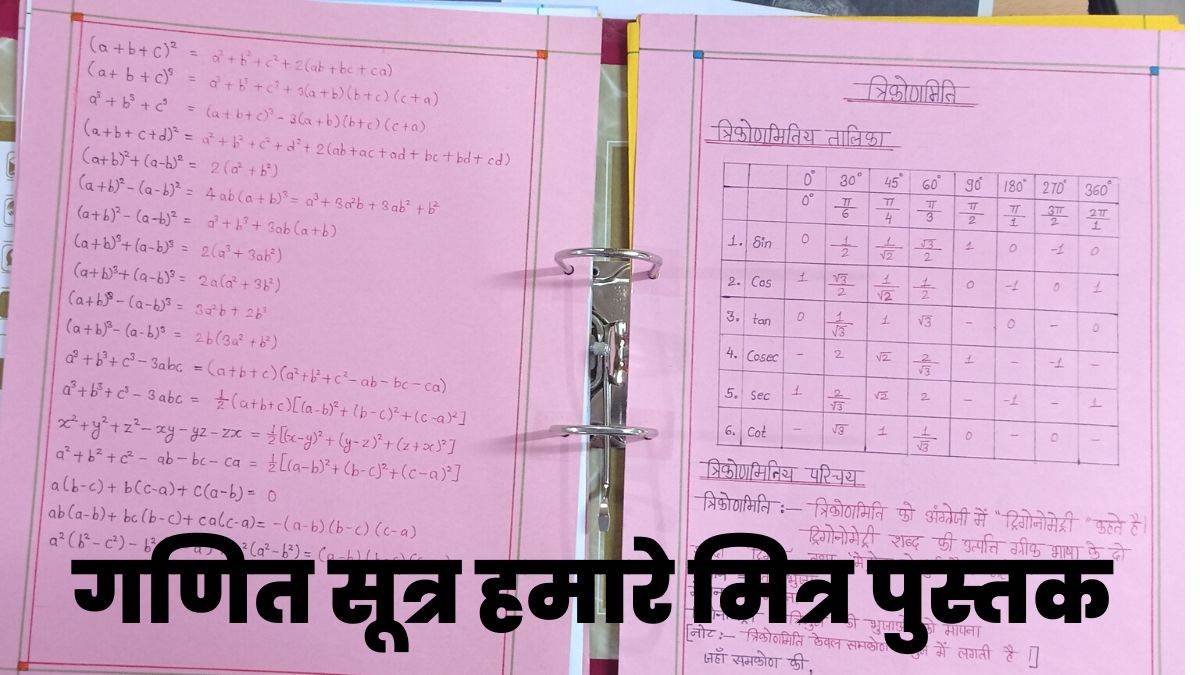 (a+b+c)² = a²+b²+c²+2(ab+bc+ca)
(a+b+c)³ = a³+b³+c³+3(a+b)(b+c)(c+a)
a³+b³+c³ = (a+b+c)³-3(a+b)(b+c)(c+a)
(a+b+c+d)² = a²+b²+c²+d²+2(ab+ac+ad+bc+bd+cd)
(a+b)²+(a-b)² = 2(a²+b²)
(a+b)²-(a-b)² = 4ab(a+b)³=a³+3a²b+3ab²+b²
(a+b)²-(a-b)² = a³+b³+3ab(a+b)
(a+b)³+(a-b)³ = 2(a³+3ab²)
(a+b)³+(a-b)³ = 2a(a²+3b²)
(a+b)³-(a-b)³ = 3a²b+2b³
(a+b)³-(a-b)³ = 2b(3a²+b²)
a³+b³+c³-3abc = (a+b+c)(a²+b²+c²-ab-bc-ca)
a³+b³+c³-3abc = 1/2(a+b+c)[(a-b)²+(b-c)²+(c-a)²]
x²+y²+z²-xy-yz-zx = 1/2[(x-y)²+(y-z)²+(z+x)²]
a²+b²+c²-ab-bc-ca = 1/2[(a-b)²+(b-c)²+(c-a)²]
a(b-c)+b(c-a)+c(a-b) = 0
ab(a-b)+bc(b-c)+ca(c-a) = -(a-b)(b-c)(c-a)
a²(b²-c²)-b² (a²-b²) =
त्रिकोणमिति
त्रिकोणमितिय तालिका
0° 30° 45° 60° 90° 180° 270° 360°
0° π/6 π/4 π/3 π/2 π/1 3π/2 2π/1
1. Sin 0 1/2 1/√2 √3/2 1 0 -1 0
2. Cos 1 √3/2 1/√2 1/2 0 -1 0 1
3. tan 0 1/√3 1 √3 - 0 - 0
4. Cosec - 2 √2 2/√3 1 - -1 -
5. Sec 1 2/√3 √2 2 - -1 - 1
6. Cot - √3 1 1/√3 0 - 0 -
त्रिकोणमितिय परिचय
त्रिकोणमिति :— त्रिकोणमिति को अंग्रेजी में "ट्रिगोनोमेट्री" कहते है।
ट्रिगोनोमेट्री शब्द की उत्पत्ति ग्रीक भाषा के दो
गणित सूत्र हमारे मित्र पुस्तक
की भुजाओं को मापना
[नोट:— त्रिकोणमिति केवल समकोण में लगती है []
जहाँ समकोण की,